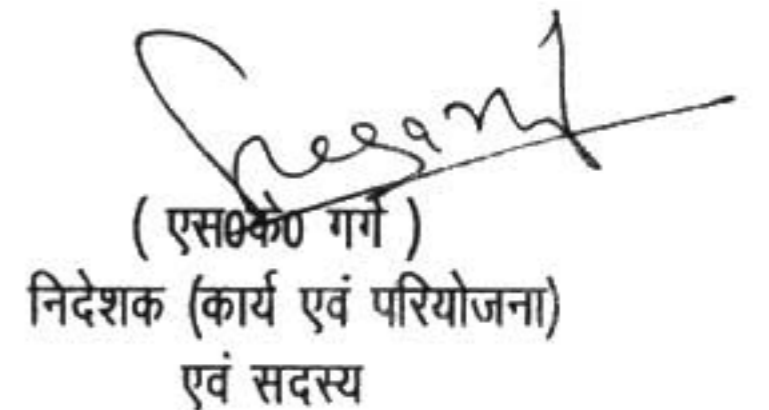 ( एस0के0 गर्ग )
निदेशक (कार्य एवं परियोजना)
एवं सदस्य